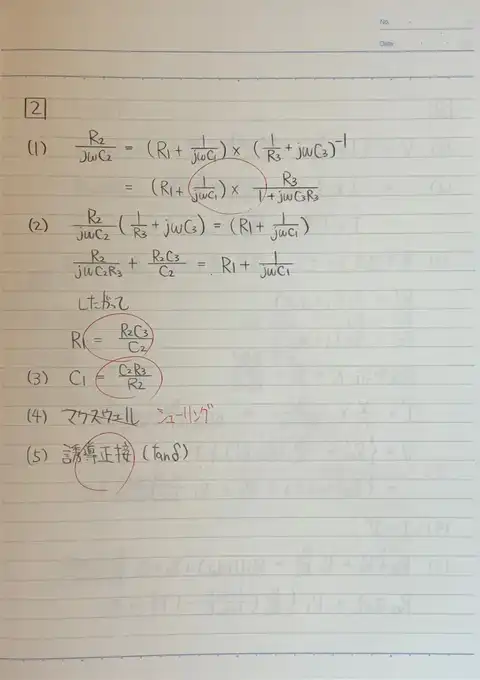 No.
Date
2
(1) R2/jωC2 = (R1 + 1/jωC1) × (1/R3 + jωC3)^-1
= (R1 + 1/jωC1) × R3/1+jωC3R3
(2) R2/jωC2 (1/R3 + jωC3) = (R1 + 1/jωC1)
R2/jωC2R3 + R2C3/C2 = R1 + 1/jωC1
したがって
R1 = R2C3/C2
(3) C1 = C2R3/R2
(4) マクスウェル シェーリング
(5) 誘導正接 (tanδ)